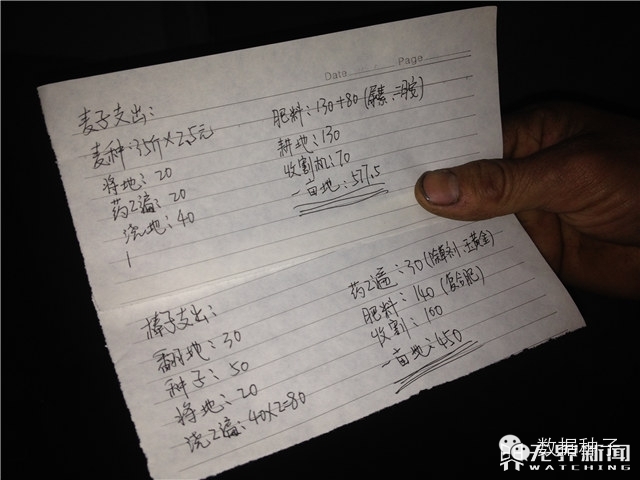 Date Page
麦子支出:
麦种:35斤×2.5元
将地:20
药2遍:20
浇地:40
肥料:130+80(尿素、二胺)
耕地:130
收割机:70
一亩地:577.5
棒子支出:
翻地:30
种子:50
将地:20
浇2遍:40×2=80
药2遍:30(除草剂、玉黄金)
肥料:140(复合肥)
收割:100
一亩地:450
数据种子
龙界新闻
WATCHING